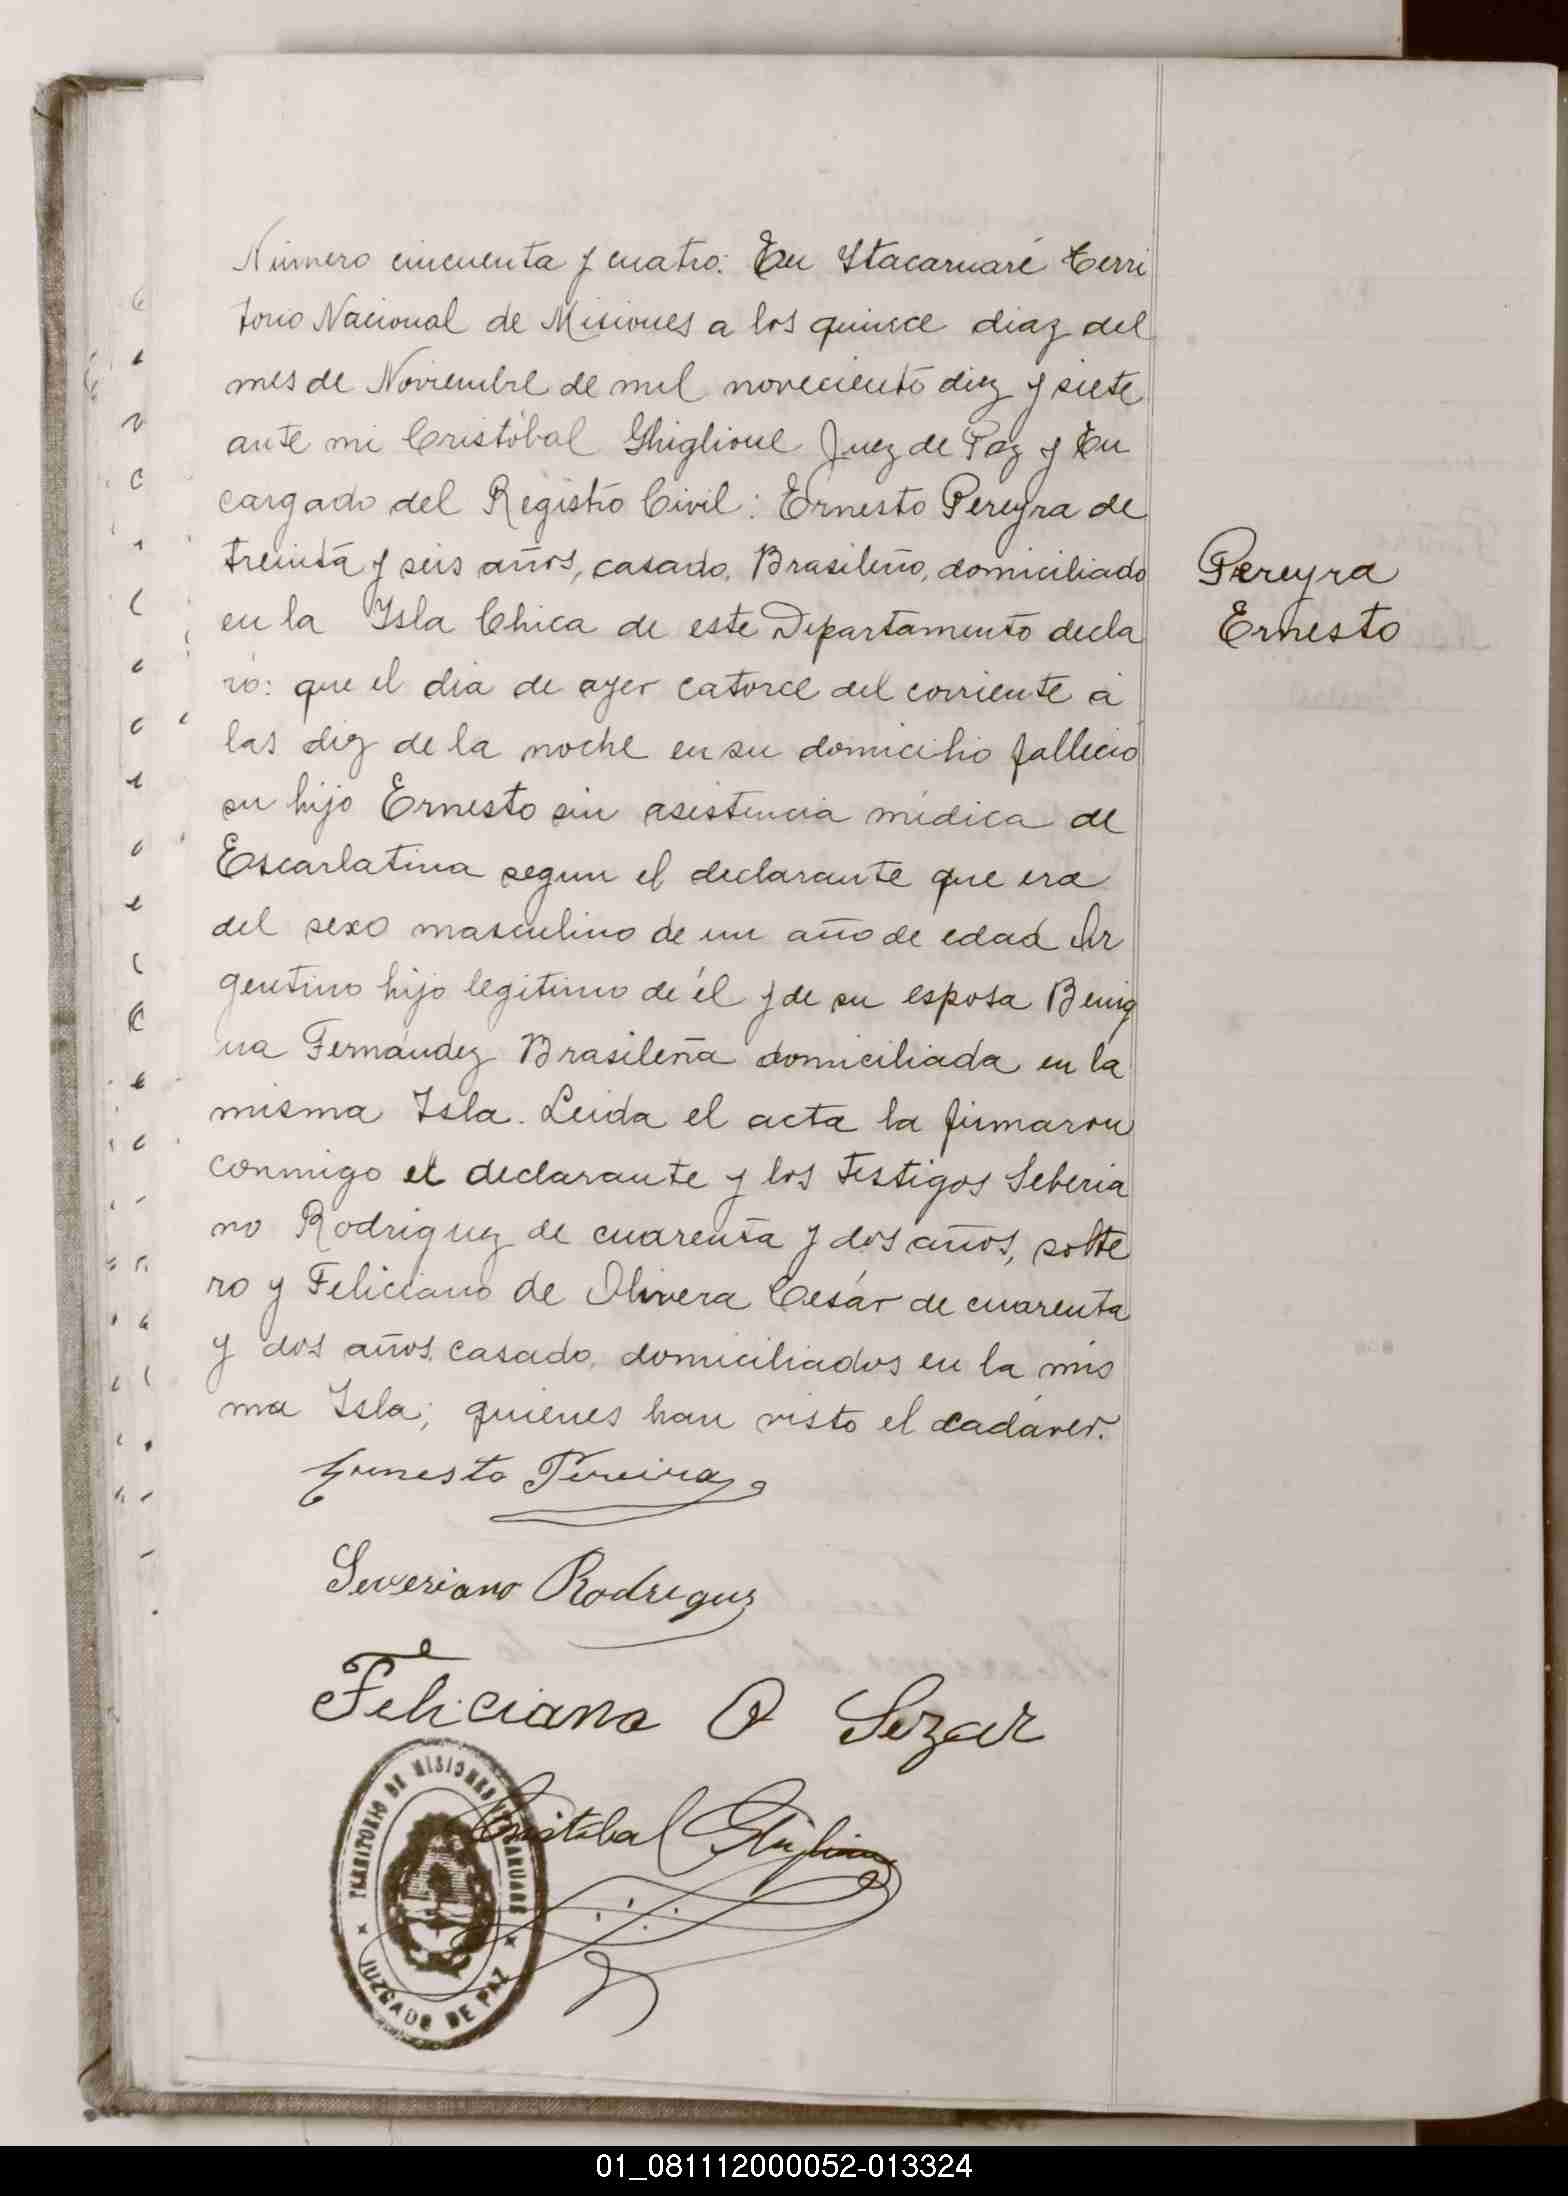 Número cincuenta y cuatro. En Itacaruaré Terri
torio Nacional de Misiones a los quince diaz del
mes de Noviembre de mil noveciento diez y siete
ante mi Cristóbal Ghiglione Juez de Paz y En
cargado del Registro Civil: Ernesto Pereyra de
treinta y seis años, casado, Brasileño, domiciliado
en la Isla Chica de este Departamento decla
ró: que el dia de ayer catorce del corriente á
las diez de la noche en su domicilio falleció
su hijo Ernesto sin asistencia médica de
Escarlatina segun el declarante que era
del sexo masculino de un año de edad Ar
gentino hijo legitimo de él y de su esposa Benig
na Fernández Brasileña domiciliada en la
misma Isla. Leida el acta la firmaron
conmigo el declarante y los testigos Seberia
no Rodriguez de cuarenta y dos años, solte
ro y Feliciano de Olivera Cesár de cuarenta
y dos años, casado, domiciliados en la mis
ma Isla; quienes han visto el cadáver.
Pereyra
Ernesto
Ernesto Pereira
Severiano Rodriguez
Feliciano O Sezar
Cristobal Ghiglione
TERRITORIO DE MISIONES ITACARUARE
JUZGADO DE PAZ
01_081112000052-013324